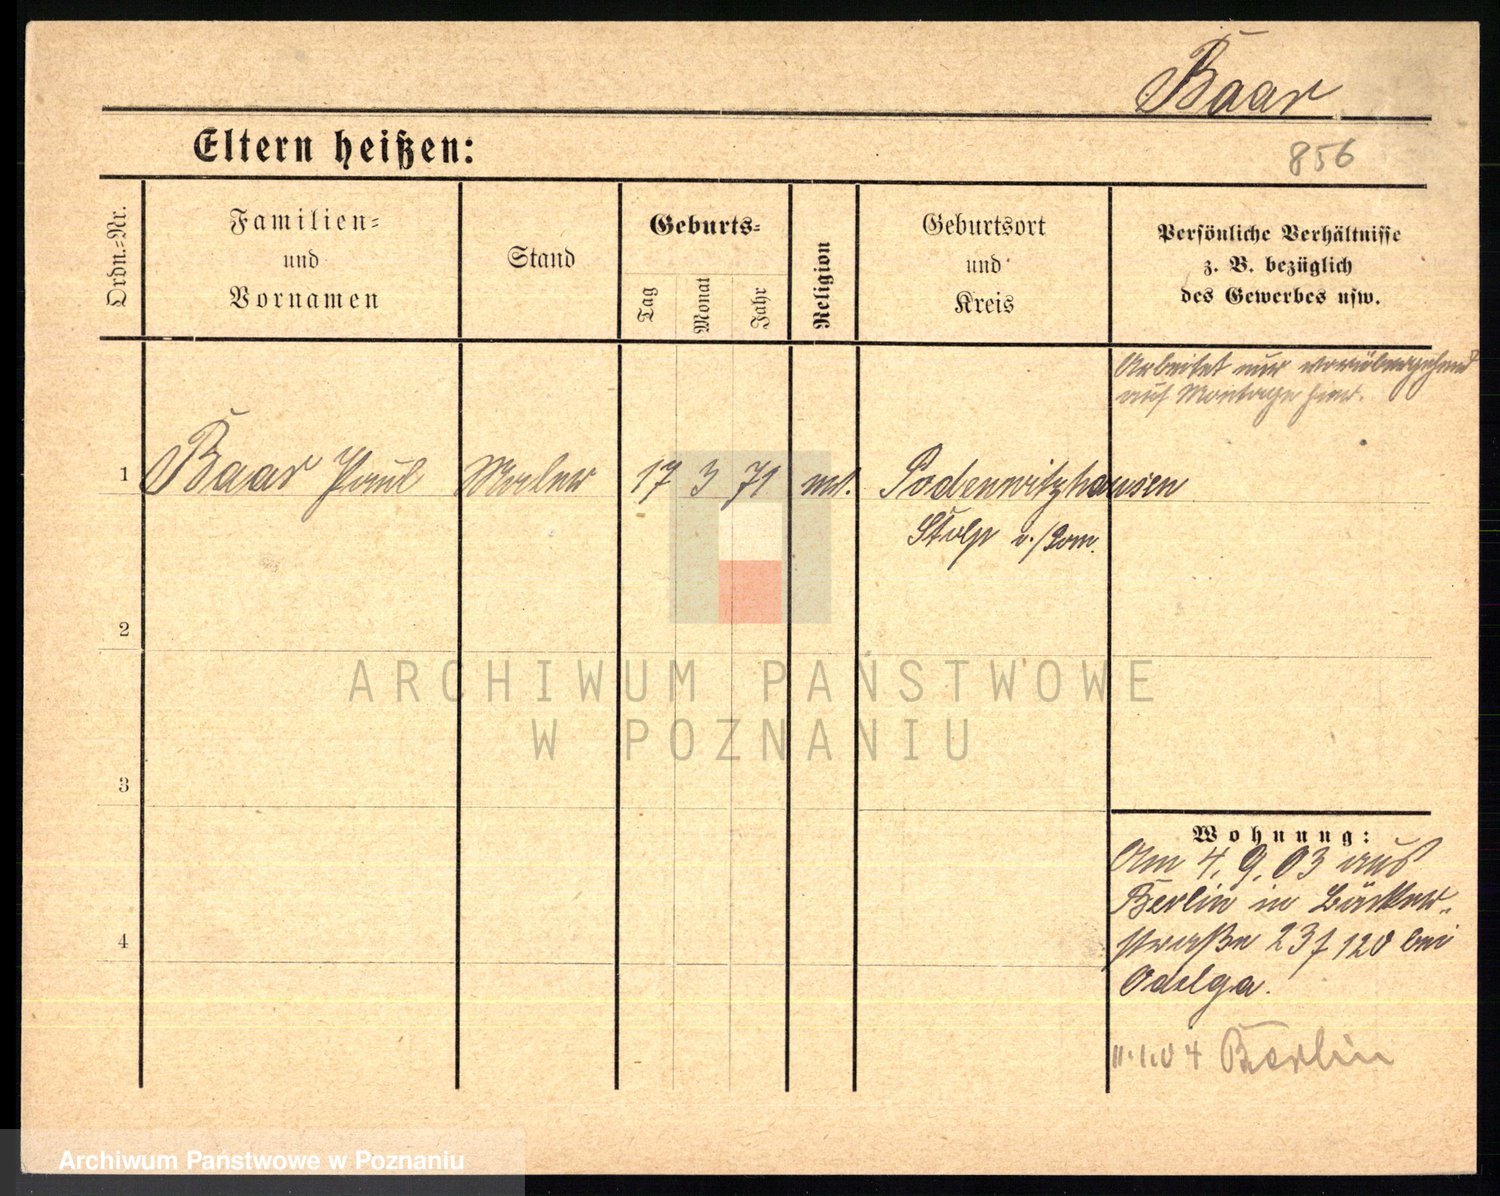 Baar
Eltern heißen:
856
Ordn.-Nr.
Familien-
und
Vornamen
Stand
Geburts-
Tag
Monat
Jahr
Religion
Geburtsort
und
Kreis
Persönliche Verhältnisse
z. B. bezüglich
des Gewerbes usw.
Arbeitet nur vorübergehend
auf Montage hier.
1 Baar Paul Maler 17 3 71 Podewitzhausen
Stolp i./Pom.
2
3
4
Wohnung:
Am 4.9.03 aus
Berlin in Bäcker-
straße 23 I 120 bei
Odelga.
11.1.04 Berlin
ARCHIWUM PAŃSTWOWE
W POZNANIU
Archiwum Państwowe w Poznaniu